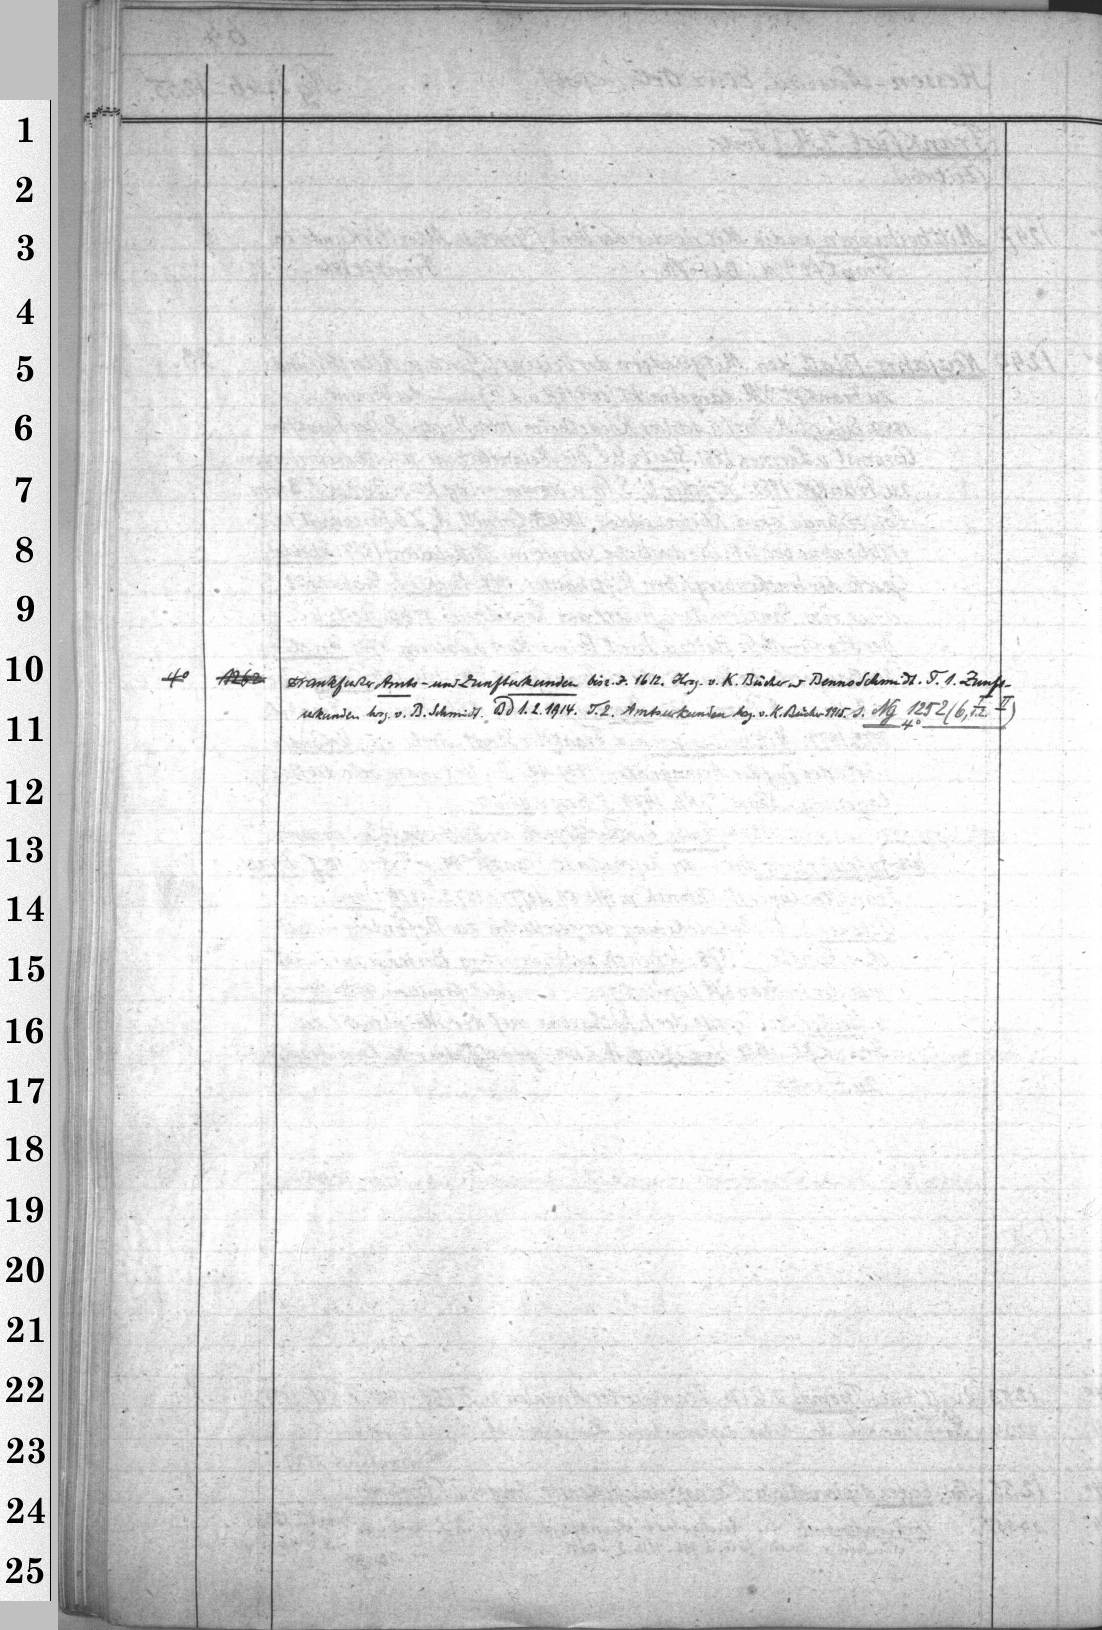 1
2
3
4
5
6
7
8
9
10
4° 1262 Frankfurter Amts- und Zunfturkunden bis z. J. 1612. Hrsg. v. K. Bücher u. Benno Schmidt. T. 1. Zunft-
urkunden hrsg. v. B. Schmidt. Bd 1.2. 1914. T. 2. Amtsurkunden hrsg. v. K. Bücher 1915. s. Ng 4° 1252 (6, I-II)
11
12
13
14
15
16
17
18
19
20
21
22
23
24
25